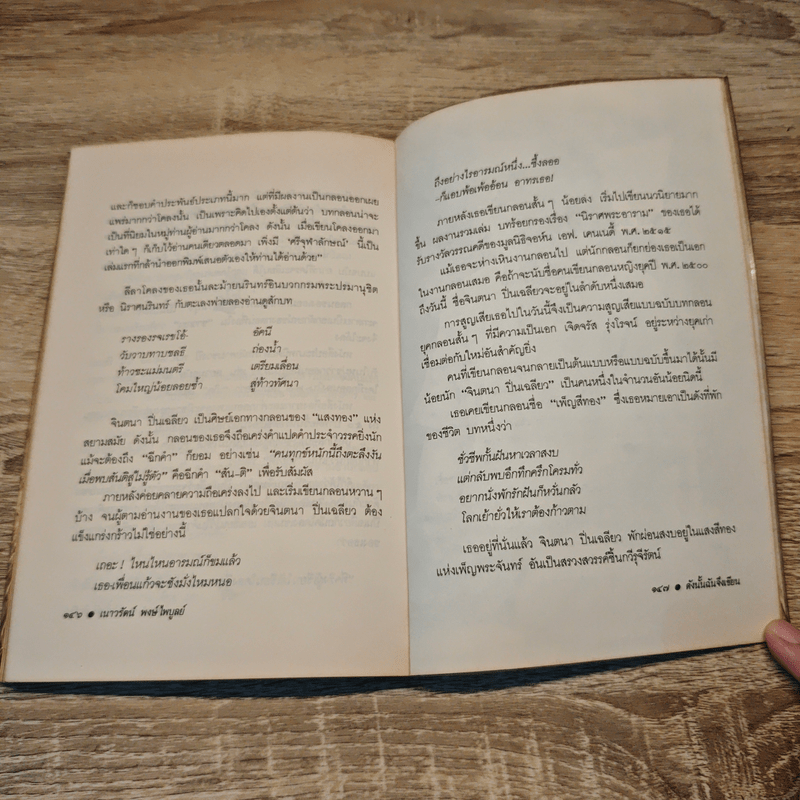 และก็ชอบคำประพันธ์ประเภทนี้มาก แต่ที่มีผลงานเป็นกลอนออกเผย
แพร่มากกว่าโคลงนั้น เป็นเพราะคิดไปเองตั้งแต่ต้นว่า บทกลอนน่าจะ
เป็นที่นิยมในหมู่ท่านผู้อ่านมากกว่าโคลง ดังนั้น เมื่อเขียนโคลงออกมา
เท่าใด ๆ ก็เก็บไว้อ่านคนเดียวตลอดมา เพิ่งมี 'ศรีจุฬาลักษณ์' นี้เป็น
เล่มแรกที่กล้านำออกพิมพ์เสนอตัวเองให้ท่านได้อ่านด้วย"
ลีลาโคลงของเธอนั้นละม้ายนรินทร์อินบวกกรมพระปรมานุชิต
หรือ นิราศนรินทร์ กับตะเลงพ่ายลองอ่านดูสักบท
รางรองรจเรขโอ้- อัคนี
รับวาบทาบชลธี ถ่องน้ำ
ท้าวชะแม่มนตรี เตรียมเลื่อน
โคมใหญ่น้อยลอยซ้ำ สู่ท้าวทัศนา
จินตนา ปิ่นเฉลียว เป็นศิษย์เอกทางกลอนของ "แสงทอง" แห่ง
สยามสมัย ดังนั้น กลอนของเธอจึงถือเคร่งคำแปดคำประจำวรรคยิ่งนัก
แม้จะต้องถึง "ฉีกคำ" ก็ยอม อย่างเช่น "คนทุกข์หนักนี้ถึงตะลึงงัน
เมื่อพบสันติสู่ไม่รู้ตัว" คือฉีกคำ "สัน-ติ" เพื่อรับสัมผัส
ภายหลังค่อยคลายความถือเคร่งลงไป และเริ่มเขียนกลอนหวาน ๆ
บ้าง จนผู้ตามอ่านงานของเธอแปลกใจด้วยจินตนา ปิ่นเฉลียว ต้อง
แข็งแกร่งกร้าวไม่ใช่อย่างนี้
เถอะ ! ไหนไหนอารมณ์ก็ขมแล้ว
เธอ-เพื่อนแก้วจะชังมั่งไหมหนอ
๑๔๖ ● เนาวรัตน์ พงษ์ไพบูลย์
ถึงอย่างไรอารมณ์หนึ่ง...ซึ้งลออ
-ก็แอบพ้อเพ้ออ้อน อาทรเธอ!
ภายหลังเธอเขียนกลอนสั้นๆ น้อยลง เริ่มไปเขียนนวนิยายมาก
ขึ้น ผลงานรวมเล่ม บทร้อยกรองเรื่อง "นิราศพระอาราม" ของเธอได้
รับรางวัลวรรณคดีของมูลนิธิจอห์น เอฟ. เคนเนดี้ พ.ศ. ๒๕๑๕
แม้เธอจะห่างเหินงานกลอนไป แต่นักกลอนก็ยกย่องเธอเป็นเอก
ในงานกลอนเสมอ คือถ้าจะนับชื่อคนเขียนกลอนหญิงยุคปี พ.ศ. ๒๕๐๐
ถึงวันนี้ ชื่อจินตนา ปิ่นเฉลียวจะอยู่ในลำดับหนึ่งเสมอ
การสูญเสียเธอไปในวันนี้จึงเป็นความสูญเสียแบบฉบับบทกลอน
ยุคกลอนสั้น ๆ ที่มีความเป็นเอก เจิดจรัส รุ่งโรจน์ อยู่ระหว่างยุคเก่า
เชื่อมต่อกับใหม่อันสำคัญยิ่ง
คนที่เขียนกลอนจนกลายเป็นต้นแบบหรือแบบฉบับขึ้นมาได้นั้นมี
น้อยนัก "จินตนา ปิ่นเฉลียว" เป็นคนหนึ่งในจำนวนอันน้อยนิดนี้
เธอเคยเขียนกลอนชื่อ "เพ็ญสีทอง" ซึ่งเธอหมายเอาเป็นดั่งที่พัก
ของชีวิต บทหนึ่งว่า
ชั่วชีพกั้นฝันหาเวลาสงบ
แต่กลับพบอึกทึกครึกโครมทั่ว
อยากนั่งพักรักฝันก็หวั่นกลัว
โลกเย้ายั่วให้เราต้องก้าวตาม
เธออยู่ที่นั่นแล้ว จินตนา ปิ่นเฉลียว พักผ่อนสงบอยู่ในแสงสีทอง
แห่งเพ็ญพระจันทร์ อันเป็นสรวงสวรรค์ชั้นกวีรุจีรัตน์
๑๔๗ ● ดังนั้นฉันจึงเขียน